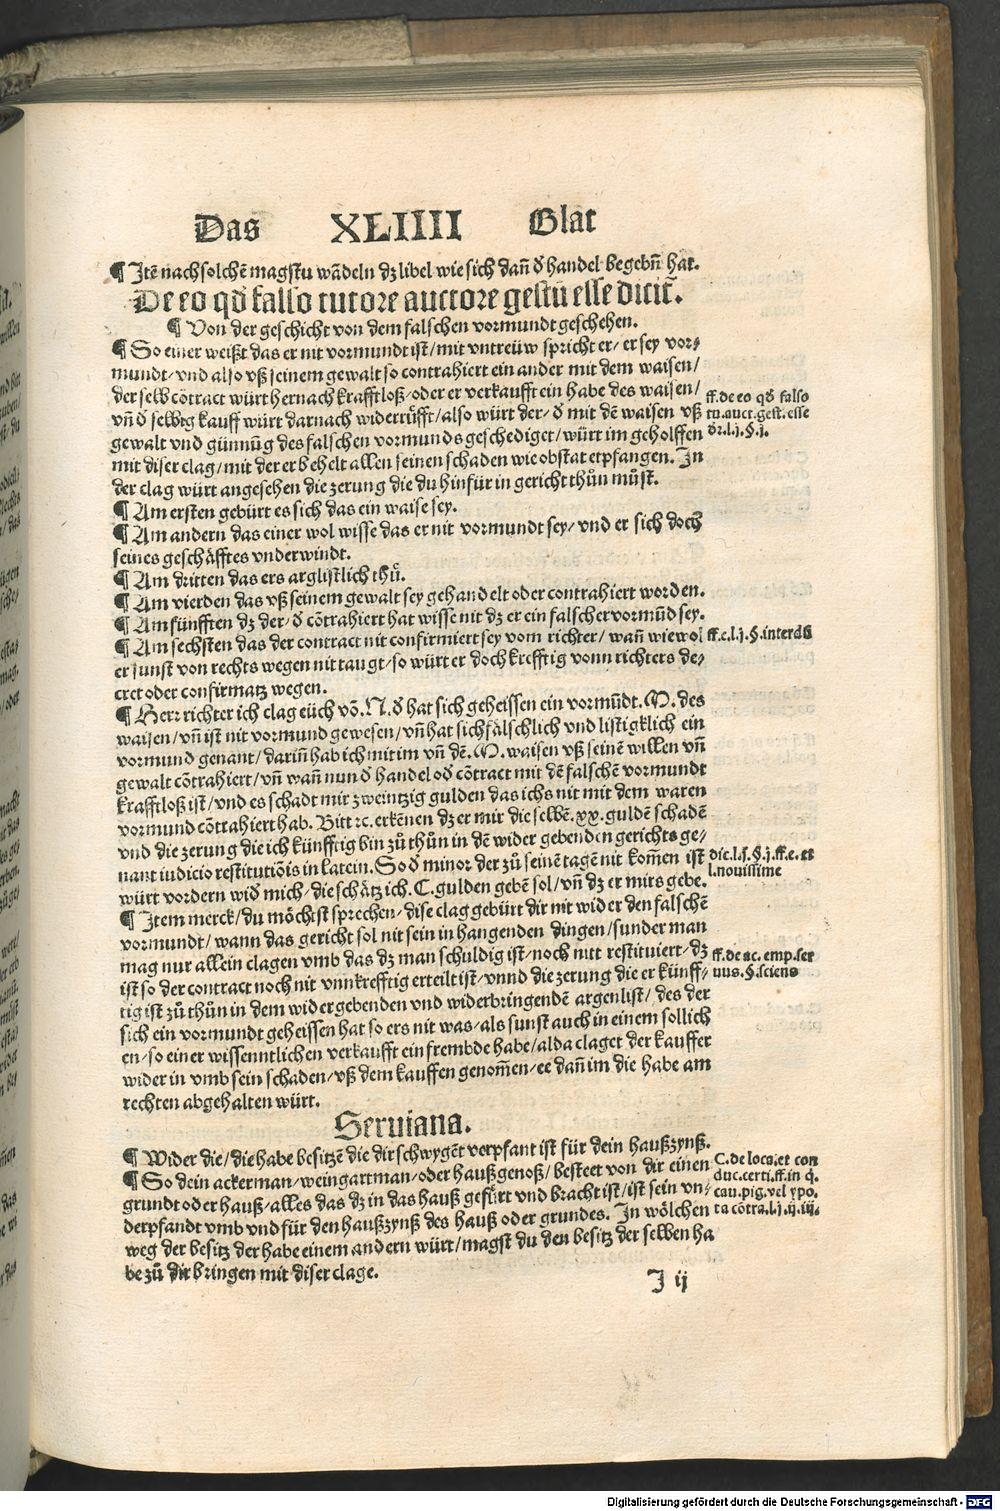 Das XLIIII Blat
¶ Itē nach solchē magstu wādeln dz libel wie sich dañ d̕ handel begebñ hat.
De eo qđ falso tutore auctore gestū esse dicit̄.
¶ Von der geschicht von dem falschen vormundt geschehen.
¶ So einer weißt das er nit vormundt ist/ mit vntreüw spricht er/ er sey vor⸗
mundt/ vnd also vß seinem gewalt so contrahiert ein ander mit dem waisen/
der selb cōtract würt hernach krafftloß/ oder er verkaufft ein habe des waisen/
vñ d̕ selbig kauff würt darnach widerrüfft/ also würt der/ d̕ mit dē waisen vß
gewalt vnd günnūg des falschen vormunds geschediget/ würt im geholffen
mit diser clag/ mit der er behelt allen seinen schaden wie obstat etpfangen. In
der clag würt angesehen die zerung die du hinfür in gericht thůn müst.
ff. de eo qđ falso
tu. auct. gest. esse
dr. l. j. §. j.
¶ Am ersten gebürt es sich das ein waise sey.
¶ Am andern das einer wol wisse das er nit vormundt sey/ vnd er sich doch
seines geschäfftes vnderwindt.
¶ Am dritten das ers arglistlich thů.
¶ Am vierden das vß seinem gewalt sey gehandelt oder contrahiert worden.
¶ Am fünfften dz der/ d̕ cōtrahiert hat wisse nit dz er ein falscher vormūd sey.
¶ Am sechsten das der contract nit confirmiert sey vom richter/ wañ wie wol
er sunst von rechts wegen nit taugt/ so würt er doch krefftig vonn richters de⸗
cret oder confirmatz wegen.
ff. e. l. j. §. interdū
¶ Herr richter ich clag eüch vō. N. d̕ hat sich geheissen ein vormūdt. M. des
waisen/ vñ ist nit vormund gewesen/ vñ hat sich fälschlich vnd listigklich ein
vormund genant/ dariñ hab ich mit im vñ dē. M. waisen vß seinē willen vñ
gewalt cōtrahiert/ vñ wañ nun d̕ handel od̕ cōtract mit dē falschē vormundt
krafftloß ist/ vnd es schadt mir zweintzig gulden das ichs nit mit dem waren
vormund cōtrahiert hab. Bitt ⁊c. erkēnen dz er mir die selbē. xx. guldē schadē
vnd die zerung die ich künfftig bin zů thůn in dē wider gebenden gerichts ge⸗
nant iudicio restitutiōis in latein. So d̕ minor der zů seinē tagē nit kom̄en ist
würt vordern wid̕ mich/ die schätz ich. C. gulden gebē sol/ vñ dz er mirs gebe.
dic. l. j. §. j. ff. e. et
l. nouissime
¶ Item merck/ du möchtst sprechen/ dise clag gebürt dir nit wider den falschē
vormundt/ wann das gericht sol nit sein in hangenden dingen/ sunder man
mag nur allein clagen vmb das dz man schuldig ist/ noch nitt restituiert/ dz
ist so der contract noch nit vnnkrefftig erteilt ist/ vnnd die zerung die er künff⸗
tig ist zů thůn in dem widergebenden vnd widerbringendē argenlist/ des der
sich ein vormundt geheissen hat so ers nit was/ als sunst auch in einem sollich
en/ so einer wissenntlichen verkaufft ein frembde habe/ alda claget der kauffer
wider in vmb sein schaden/ vß dem kauffen genom̄en/ ee dañ im die habe am
rechten abgehalten würt.
ff. de ac. emp. ser
uus. §. sciens
Seruiana.
¶ Wider die/ die habe besitzē die dir schwygēt verpfant ist für dein haußzynß.
¶ So dein ackerman/ weingartman/ oder haußgenoß/ besteet von dir einen
grundt oder hauß/ alles das dz in das hauß gefůrt vnd bracht ist/ ist sein vn⸗
derpfandt vmb vnd für den haußzynß des hauß oder grundes. In wölchen
weg der besitz der habe einem andern würt/ magst du den besitz der selben ha
be zů dir bringen mit diser clage.
C. de loca. et con
duc. certi. ff. in q̄.
cau. pig. vel ypo.
ta cōtra. l. j. ij. iij.
I ij
Digitalisierung gefördert durch die Deutsche Forschungsgemeinschaft - DFG